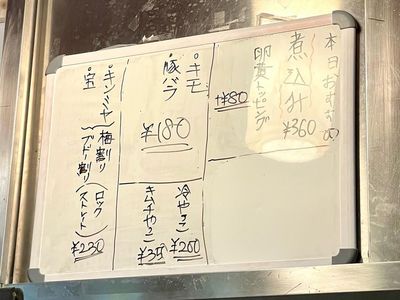 本日おすすめ
煮込み
¥360
卵黄トッピング
+¥80
キモ
豚バラ
¥180
冷やっこ
キムチやっこ
キンミヤ
宝
梅割り
ブドー割り
(ロック
ストレート)
¥230